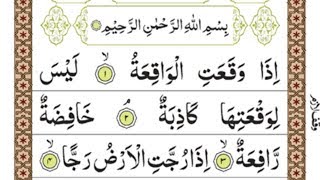 بِسْمِ اللهِ الرَّحْمٰنِ الرَّحِيْمِ
اِذَا وَقَعَتِ الْوَاقِعَةُ ۙ﴿۱﴾ لَيْسَ
لِوَقْعَتِهَا كَاذِبَةٌ ۘ﴿۲﴾ خَافِضَةٌ
رَّافِعَةٌ ۙ﴿۳﴾ اِذَا رُجَّتِ الْاَرْضُ رَجًّا ۙ﴿۴﴾